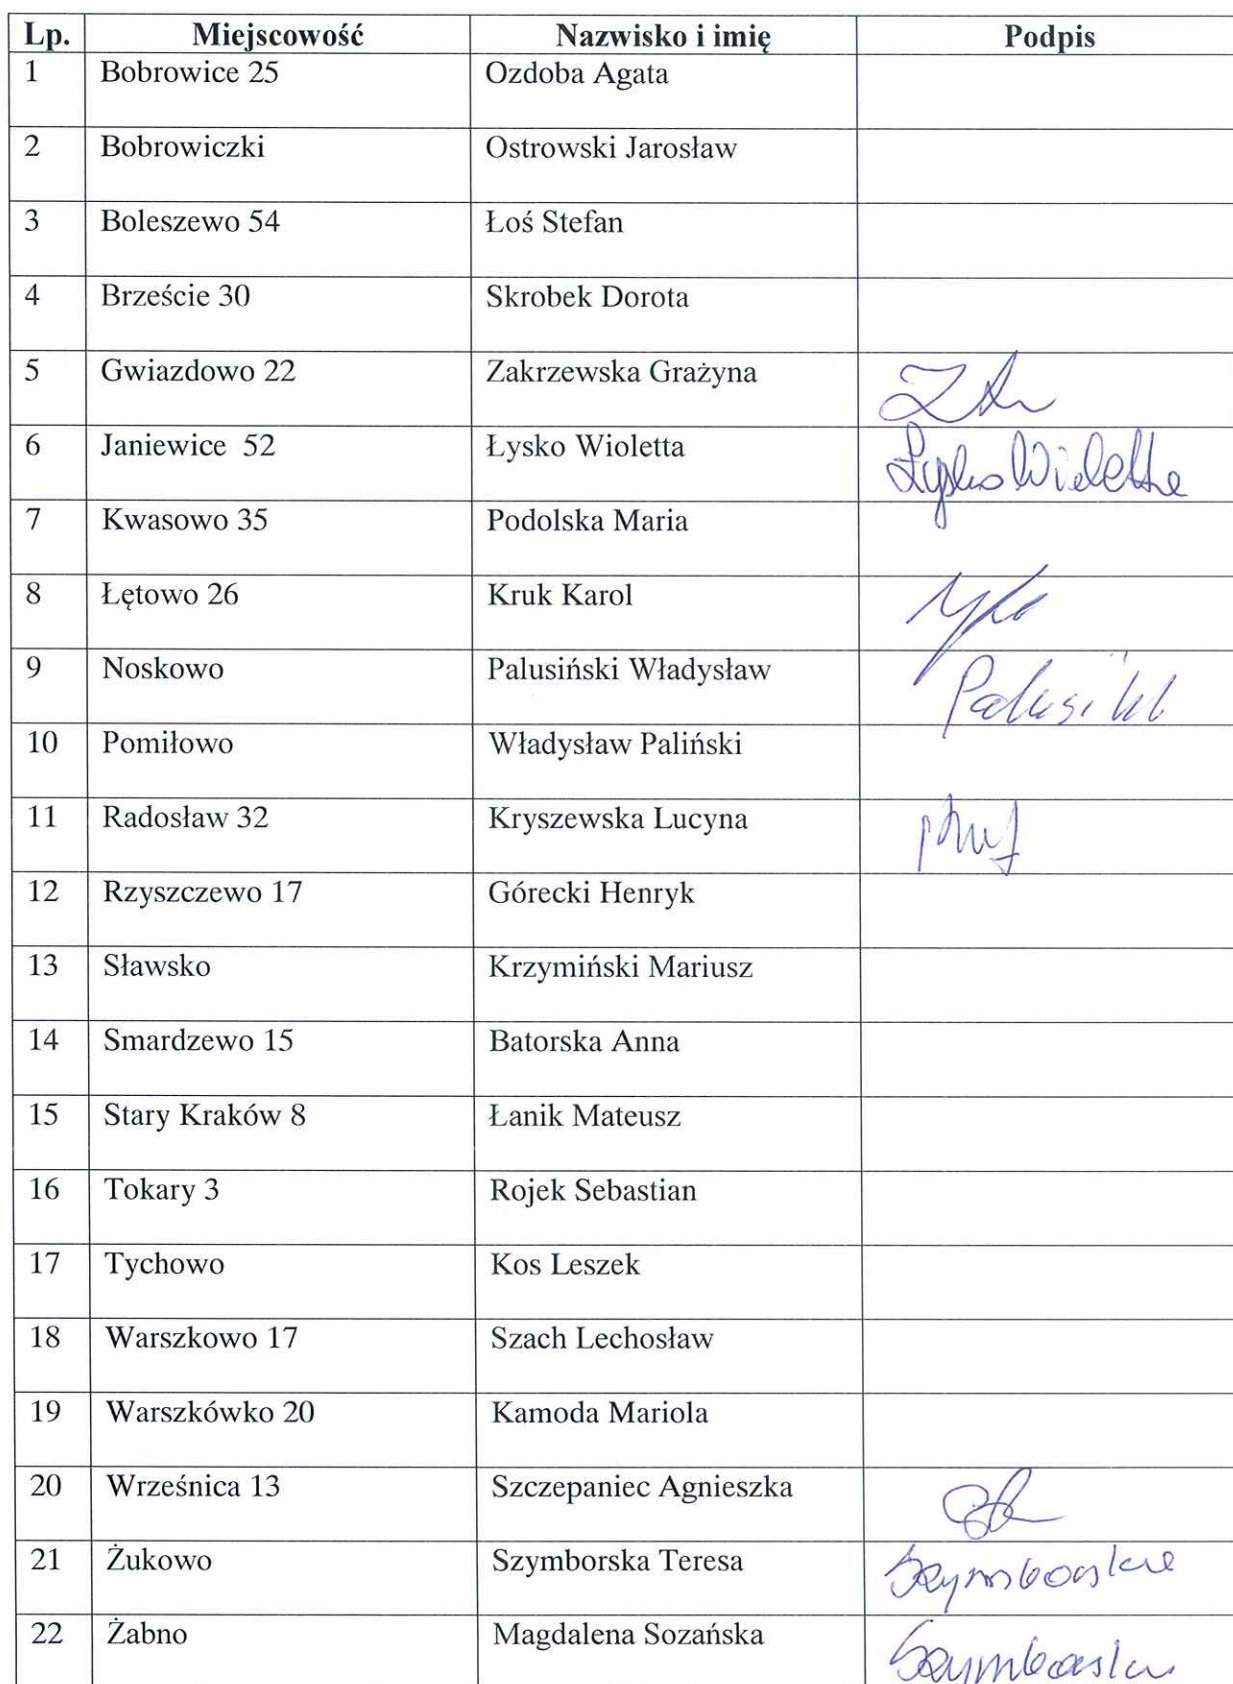 Lp. Miejscowość Nazwisko i imię Podpis
1 Bobrowice 25 Ozdoba Agata
2 Bobrowiczki Ostrowski Jarosław
3 Boleszewo 54 Łoś Stefan
4 Brzeście 30 Skrobek Dorota
5 Gwiazdowo 22 Zakrzewska Grażyna
6 Janiewice 52 Łysko Wioletta Łysko Wioletta
7 Kwasowo 35 Podolska Maria
8 Łętowo 26 Kruk Karol
9 Noskowo Palusiński Władysław
10 Pomiłowo Władysław Paliński
11 Radosław 32 Kryszewska Lucyna
12 Rzyszczewo 17 Górecki Henryk
13 Sławsko Krzymiński Mariusz
14 Smardzewo 15 Batorska Anna
15 Stary Kraków 8 Łanik Mateusz
16 Tokary 3 Rojek Sebastian
17 Tychowo Kos Leszek
18 Warszkowo 17 Szach Lechosław
19 Warszkówko 20 Kamoda Mariola
20 Wrześnica 13 Szczepaniec Agnieszka
21 Żukowo Szymborska Teresa Szymborska
22 Żabno Magdalena Sozańska Szymborska